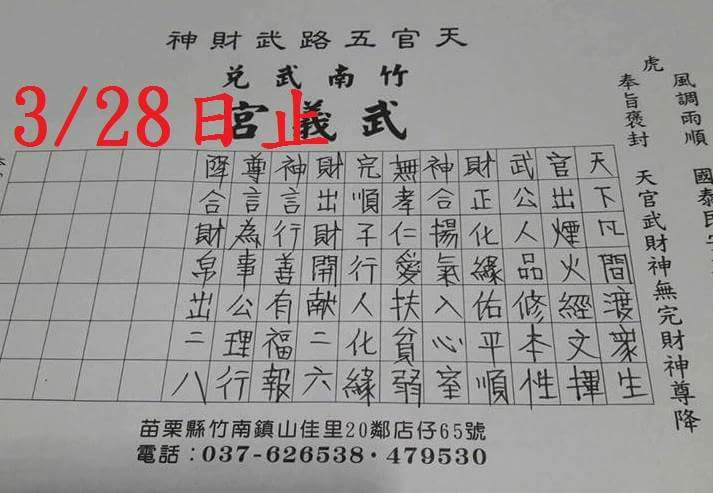 天官五路武財神
竹南武兌
武義宮
3/28日止
風調雨順 國泰民
虎
奉旨褒封 天官武財神無完財神尊降
天下凡間渡眾生
官出煙火經文揮
武公人品修本性
財正化緣佑平順
神合揚氣入心室
無孝仁愛扶貧弱
完順子行人化緣
財出財開献二六
神言行善有福報
尊言為事公理行
降合財帛出二八
苗栗縣竹南鎮山佳里20鄰店仔65號
電話：037-626538·479530